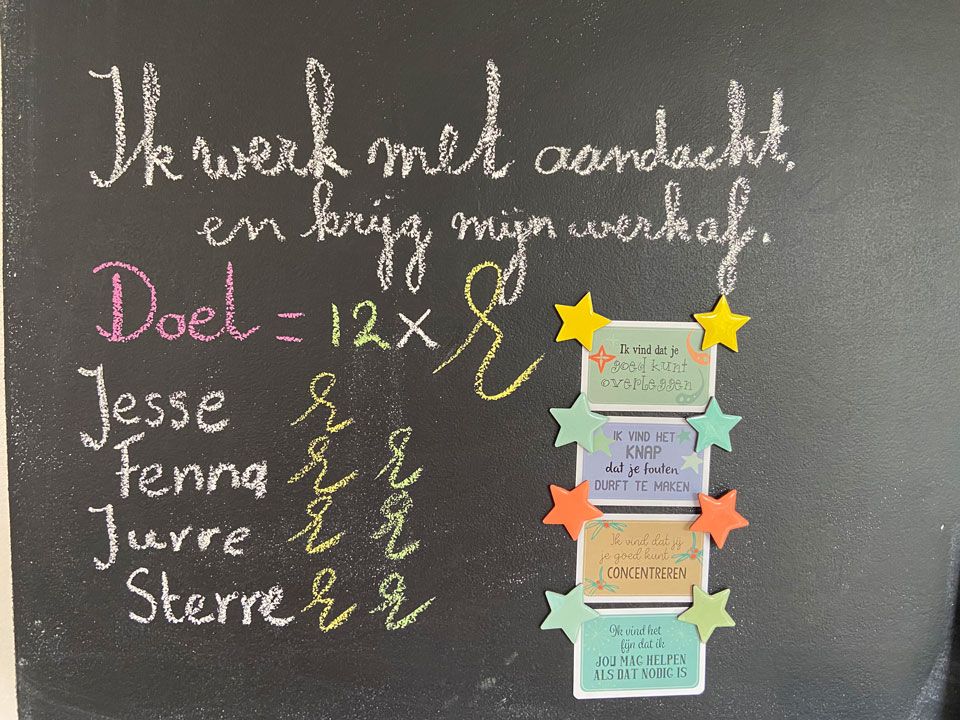 Ik werk met aandacht,
en krijg mijn werk af.
Doel = 12 x
Jesse
Fenna
Jurre
Sterre
Ik vind dat je
goed kunt
overleggen
IK VIND HET
KNAP
dat je fouten
DURFT TE MAKEN
Ik vind dat jij
je goed kunt
CONCENTREREN
Ik vind het
fijn dat ik
JOU MAG HELPEN
ALS DAT NODIG IS